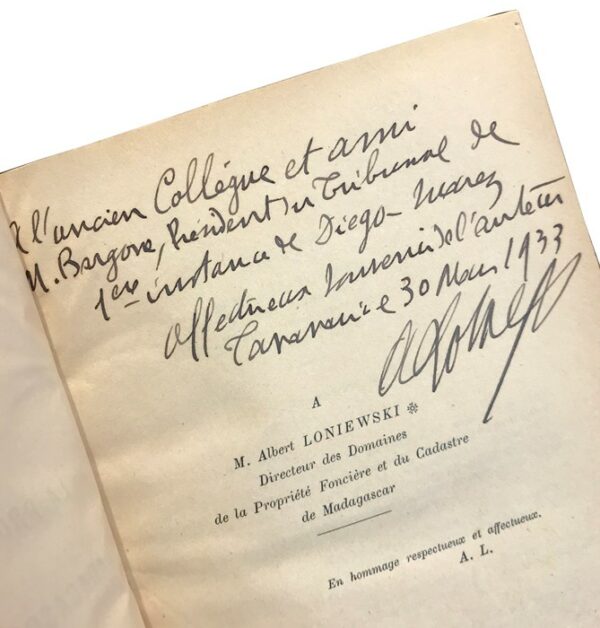 A l'ancien Collègue et ami
M. Bargove, Président du Tribunal de
1ère instance de Diego-Suarez
affectueux souvenir de l'auteur
Tananarive 30 Mars 1933
A
M. Albert LONIEWSKI ❊
Directeur des Domaines
de la Propriété Foncière et du Cadastre
de Madagascar
En hommage respectueux et affectueux.
A. L.